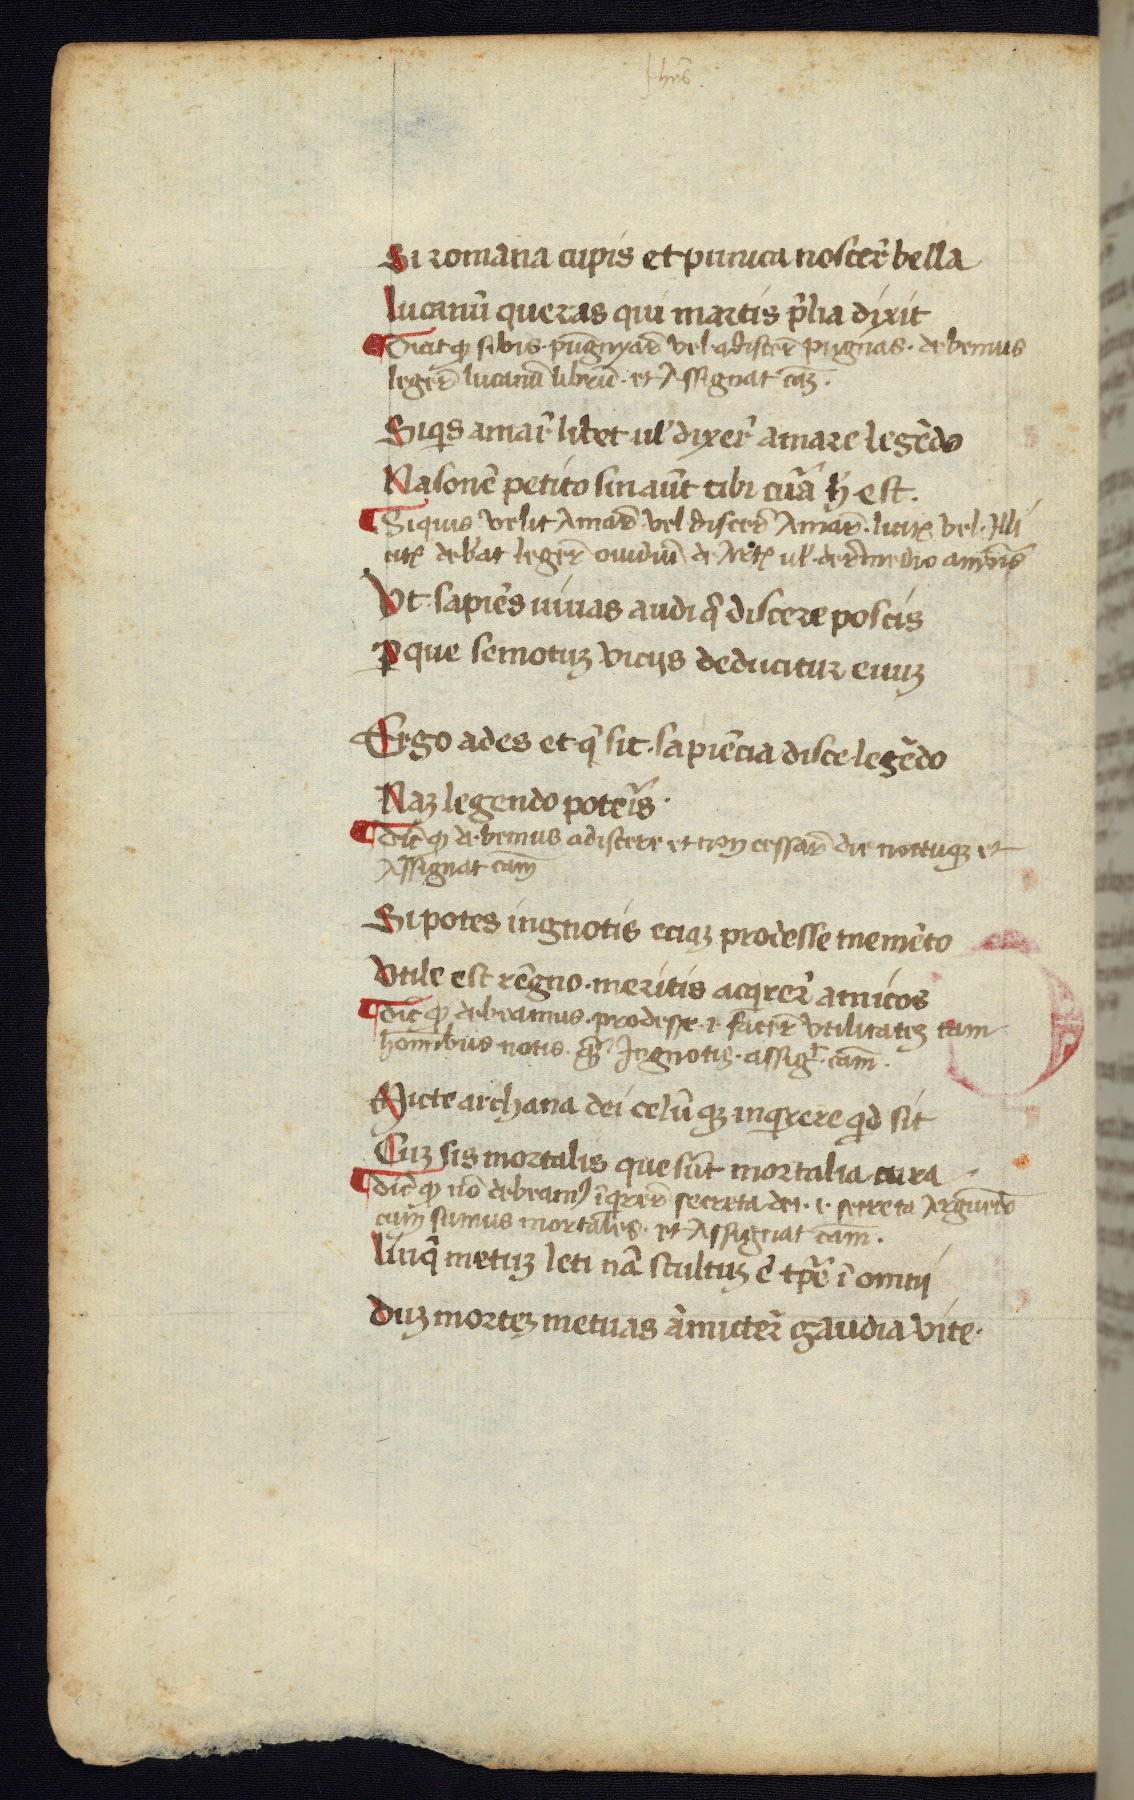 Jhũs
Si romana cupis et punica noscer̃ bella
lucanũ queras qui martis p̃lia dixit
Dicit ꝙ si vis pũgnar̃ vel adiscer̃ pugnas · debemus
leger̃ lucanũ librũ · et Assignat cãȝ ·
Siqͥs amar̃ libet ul' dixer̃ amare legẽdo
Nasonẽ petito sin aũt tibi cur̃a h̃ est ·
Si quis velit Amar̃ vel discer̃ Amar̃ · licit vel · Illi
cit debeat leger̃ ouidiũ de Arte ul' · de remedio amoris
Ut · sapiẽs uiuas audi q̃ discere poscis
ꝑ que semotuȝ vicijs deducitur euuȝ
Ergo ades et q̃ sit · sapiẽcia disce legẽdo
Naȝ legendo poteris ·
dic̃ ꝙ debemus adiscere et non cessar̃ die nottuqȝ et
Assignat cam̃
Si potes ingnotis eciaȝ prodesse memẽto
Utile est rẽgno · meritis acq̃rer̃ amicos
dic̃ ꝙ debeamus · prodesse · i · facer̃ vtilitateȝ tam
hominibus notis · qȝ̃ Ingnotis · assig̃t · cam̃ ·
Micte archana dei celũ qȝ inqͥrere qͥd sit
Cuȝ sis mortalis que sũt mortalia cura
dic̃ ꝙ nõ debeamꝰ ĩqͥrer̃ secreta dei · i · secreta
cum sumus mortales · et Assignat cam̃ ·
linq̃ metuȝ leti nã stultuȝ ẽ tp̃r̃e ĩ omni
Duȝ morteȝ metuas ãmicter̃ gaudia vite ·